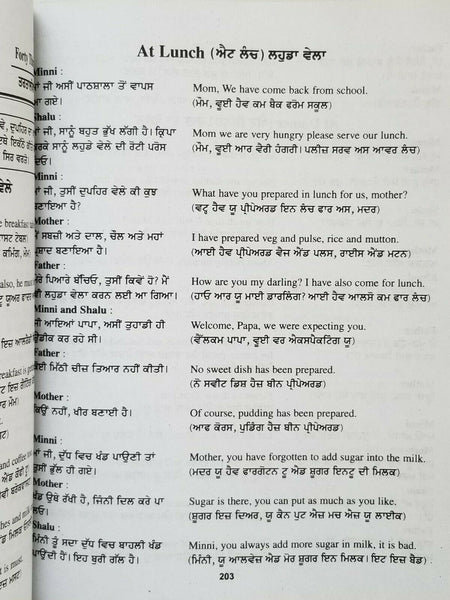 At Lunch (ਐਟ ਲੰਚ) ਲਹੁਡਾ ਵੇਲਾ
Minni :
ਮਾਂ ਜੀ ਅਸੀਂ ਪਾਠਸ਼ਾਲਾ ਤੋਂ ਵਾਪਸ Mom, We have come back from school.
ਆ ਗਏ। (ਮੌਮ, ਵੂਈ ਹੈਵ ਕਮ ਬੈਕ ਫਰੋਮ ਸਕੂਲ)
Shalu :
ਮਾਂ ਜੀ, ਸਾਨੂੰ ਬਹੁਤ ਭੁੱਖ ਲੱਗੀ ਹੈ। ਕ੍ਰਿਪਾ Mom we are very hungry please serve our lunch.
ਕਰਕੇ ਸਾਨੂੰ ਲਹੁਡੇ ਵੇਲੇ ਦੀ ਰੋਟੀ ਪਰੋਸ (ਮੌਮ, ਵੂਈ ਆਰ ਵੇਰੀ ਹੰਗਰੀ। ਪਲੀਜ਼ ਸਰਵ ਅਸ ਆਵਰ ਲੰਚ)
ਦਿਓ।
Minni :
ਮਾਂ ਜੀ, ਤੁਸੀਂ ਦੁਪਹਿਰ ਵੇਲੇ ਕੀ ਕੁਝ What have you prepared in lunch for us, mother?
ਬਣਾਇਆ ਹੈ? (ਵਟ੍ਹ ਹੈਵ ਯੂ ਪ੍ਰੀਪੇਅਰਡ ਇਨ ਲੰਚ ਫਾਰ ਅਸ, ਮਦਰ)
Mother :
ਮੈਂ ਸਬਜ਼ੀ ਅਤੇ ਦਾਲ, ਚੌਲ ਅਤੇ ਮਹਾਂ I have prepared veg and pulse, rice and mutton.
ਪ੍ਰਸ਼ਾਦ ਬਣਾਇਆ ਹੈ। (ਆਈ ਹੈਵ ਪ੍ਰੀਪੇਅਰਡ ਵੇਜ ਐਂਡ ਪਲਸ, ਰਾਈਸ ਐਂਡ ਮਟਨ)
Father :
ਮੇਰੇ ਪਿਆਰੇ ਬੱਚਿਓ, ਤੁਸੀਂ ਕਿਵੇਂ ਹੋ? ਮੈਂ How are you my darling? I have also come for lunch.
ਵੀ ਲਹੁਡਾ ਵੇਲਾ ਕਰਨ ਲਈ ਆ ਗਿਆ। (ਹਾਓ ਆਰ ਯੂ ਮਾਈ ਡਾਰਲਿੰਗ? ਆਈ ਹੈਵ ਆਲਸੋ ਕਮ ਫਾਰ ਲੰਚ)
Minni and Shalu :
ਜੀ ਆਇਆਂ ਪਾਪਾ, ਅਸੀਂ ਤੁਹਾਡੀ ਹੀ Welcome, Papa, we were expecting you.
ਉਡੀਕ ਕਰ ਰਹੇ ਸੀ। (ਵੈੱਲਕਮ ਪਾਪਾ, ਵੂਈ ਵਰ ਐਕਸਪੈਕਟਿੰਗ ਯੂ)
Father :
ਕੋਈ ਮਿੱਠੀ ਚੀਜ਼ ਤਿਆਰ ਨਹੀਂ ਕੀਤੀ। No sweet dish has been prepared.
(ਨੋ ਸਵੀਟ ਡਿਸ਼ ਹੈਜ਼ ਬੀਨ ਪ੍ਰੀਪੇਅਰਡ)
Mother :
ਕਿਉਂ ਨਹੀਂ, ਖੀਰ ਬਣਾਈ ਹੈ। Of course, pudding has been prepared.
(ਆਫ ਕੋਰਸ, ਪੁਡਿੰਗ ਹੈਜ਼ ਬੀਨ ਪ੍ਰੀਪੇਅਰਡ)
Minni :
ਮਾਂ ਜੀ, ਦੁੱਧ ਵਿਚ ਖੰਡ ਪਾਉਣੀ ਤਾਂ Mother, you have forgotten to add sugar into the milk.
ਤੁਸੀਂ ਭੁੱਲ ਹੀ ਗਏ। (ਮਦਰ ਯੂ ਹੈਵ ਫਾਰਗੋਟਨ ਟੂ ਐਡ ਸ਼ੂਗਰ ਇਨਟੂ ਦੀ ਮਿਲਕ)
Mother :
ਖੰਡ ਉਥੇ ਰੱਖੀ ਹੈ, ਜਿੰਨੀ ਦਿਲ ਕਰੇ ਪਾ Sugar is there, you can put as much as you like.
ਲਓ। (ਸ਼ੂਗਰ ਇਜ਼ ਦਿਅਰ, ਯੂ ਕੈਨ ਪੁਟ ਐਜ਼ ਮਚ ਐਜ਼ ਯੂ ਲਾਈਕ)
Shalu :
ਮਿੰਨੀ ਤੂੰ ਸਦਾ ਦੁੱਧ ਵਿਚ ਬਾਹਲੀ ਖੰਡ Minni, you always add more sugar in milk, it is bad.
ਪਾਉਂਦੀ ਹੈਂ। ਇਹ ਬੁਰੀ ਗੱਲ ਹੈ। (ਮਿੰਨੀ, ਯੂ ਆਲਵੇਜ਼ ਐਡ ਮੋਰ ਸ਼ੂਗਰ ਇਨ ਮਿਲਕ। ਇਟ ਇਜ਼ ਬੈਡ)
203